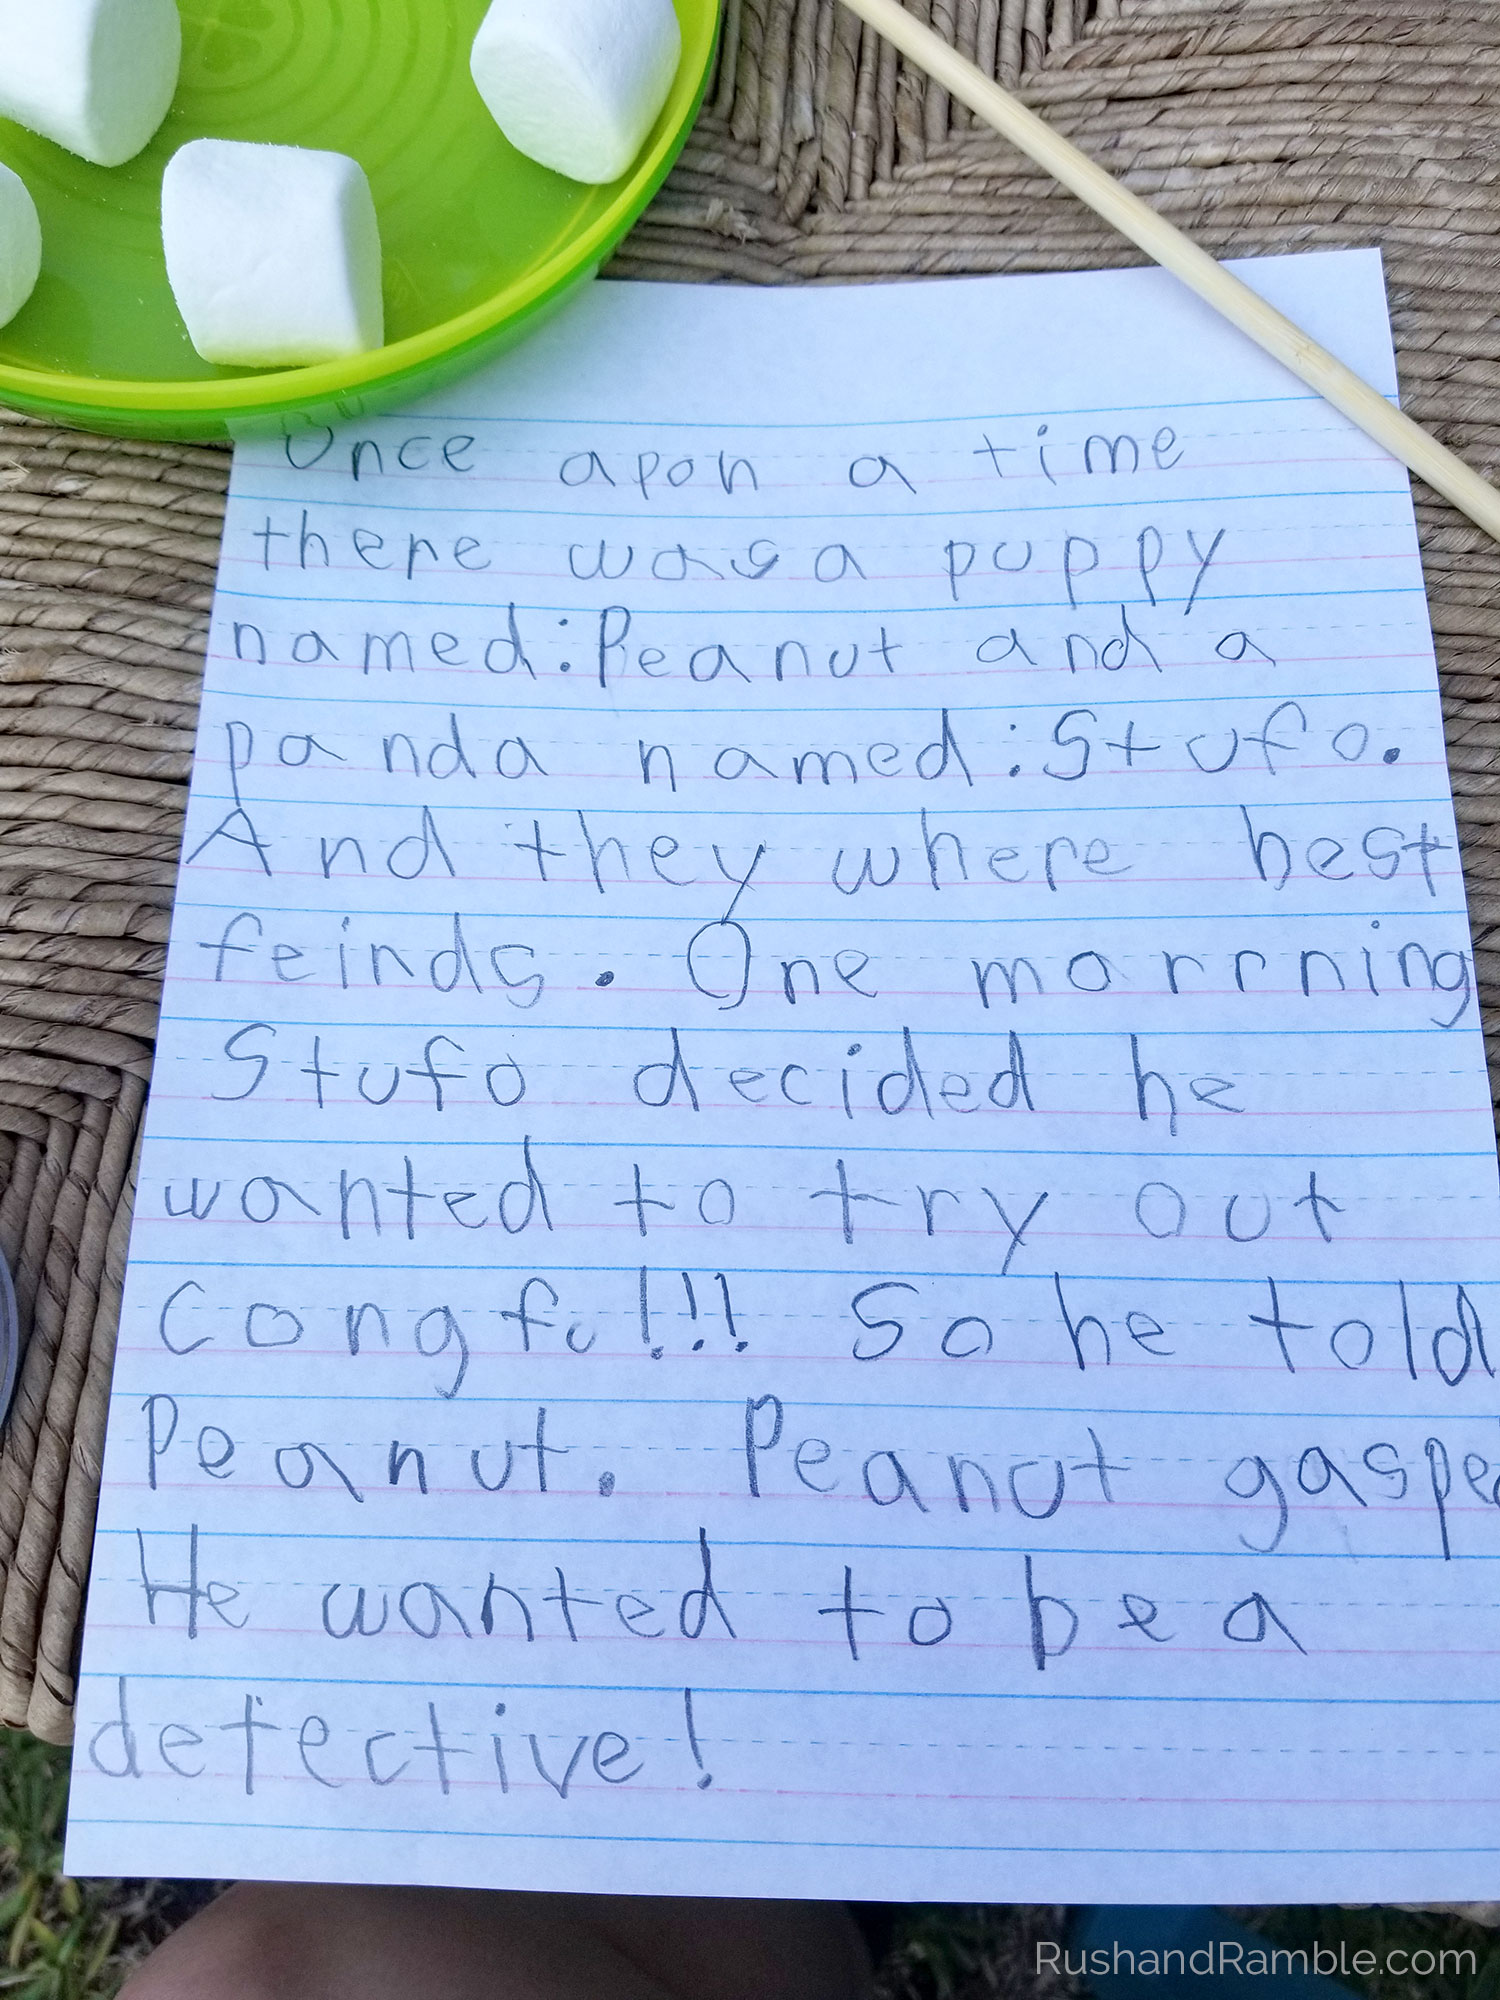 Once apon a time
there was a puppy
named: Peanut and a
panda named: Stufo.
And they where best
feinds. One morrning
Stufo decided he
wanted to try out
Congfu!!! So he told
Peanut. Peanut gasped
He wanted to be a
detective!
RushandRamble.com